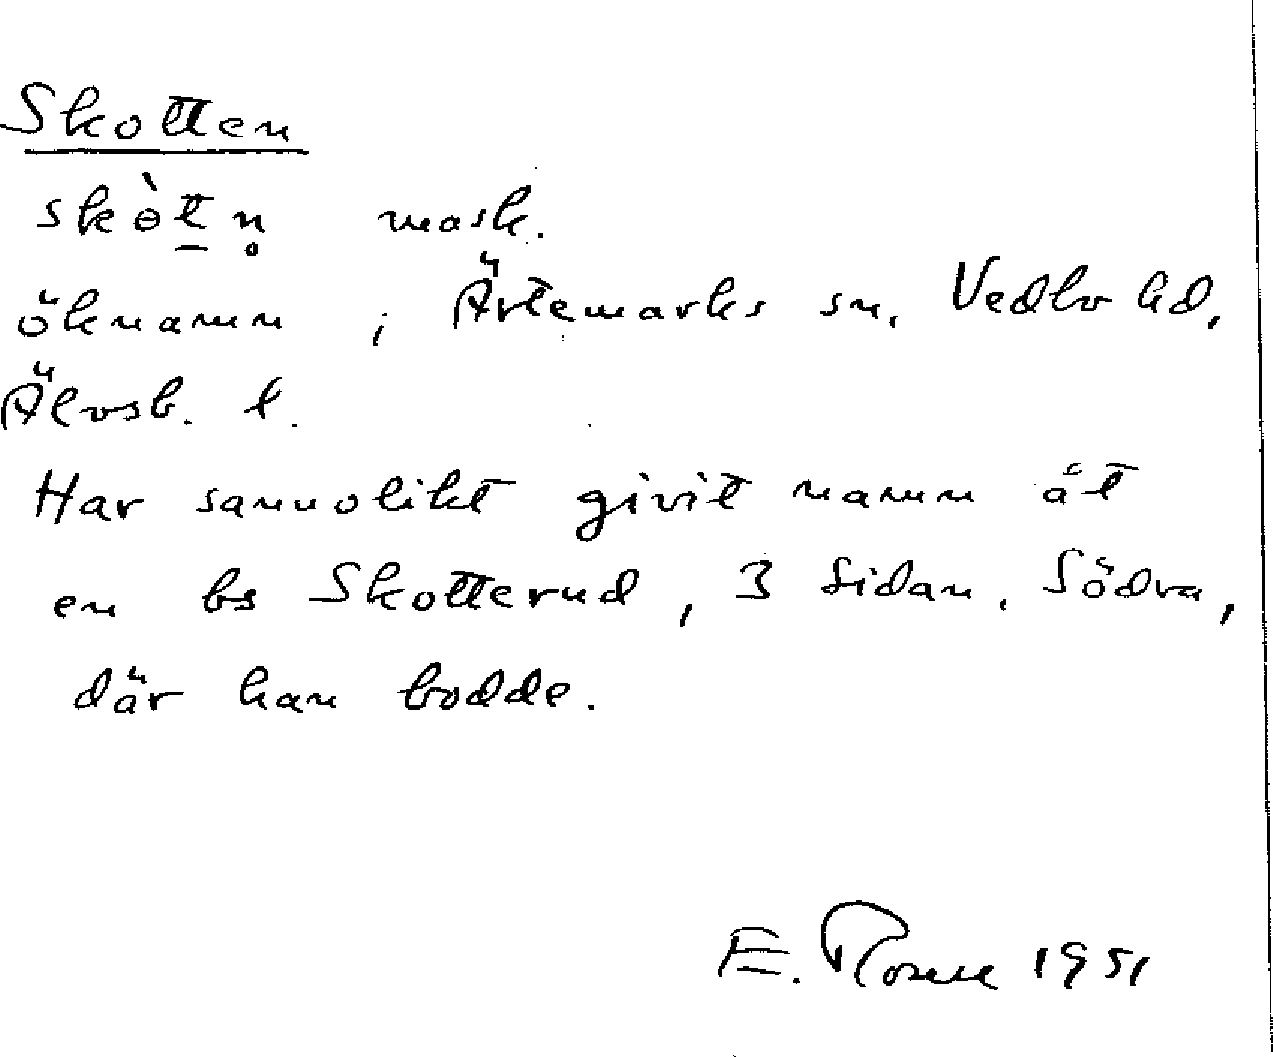 Skotten
skòt̲n̥ mask.
öknamn i Ärtemarks sn, Vedbo hd,
Älvsb. l.
Har sannolikt givit namn åt
en bs Skotterud, 3 Sidan. Södra,
där han bodde.
E. 1951